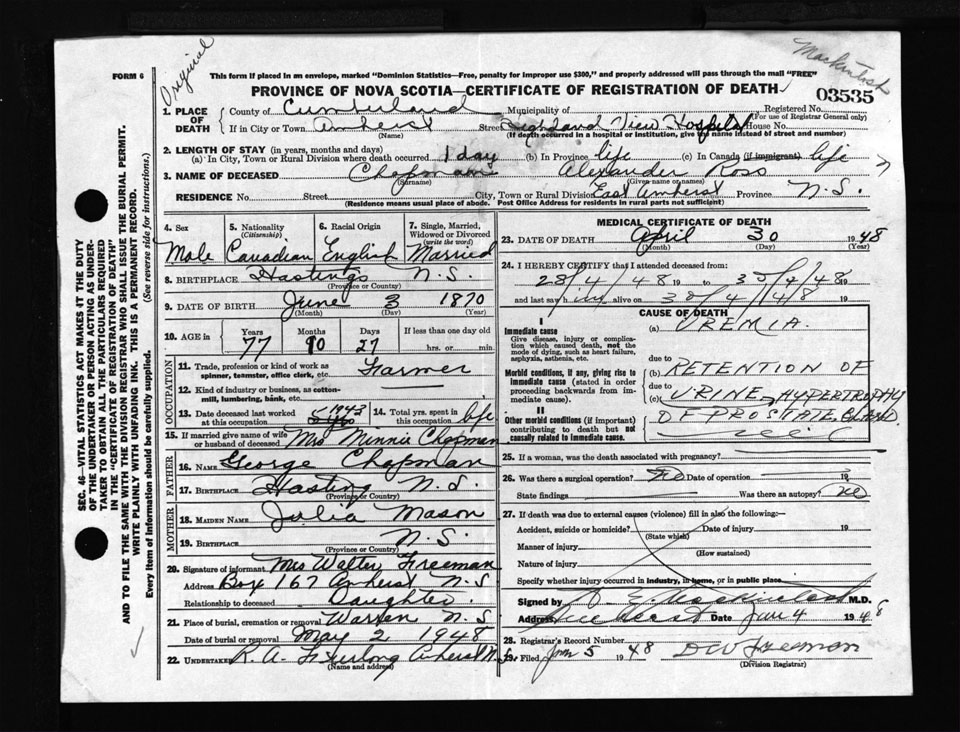 Original
Mackintosh
FORM 6
This form if placed in an envelope, marked "Dominion Statistics—Free, penalty for improper use $300," and properly addressed will pass through the mail "FREE"
PROVINCE OF NOVA SCOTIA—CERTIFICATE OF REGISTRATION OF DEATH
03535
1. PLACE OF DEATH
County of Cumberland Municipality of Registered No.
(For use of Registrar General only)
If in City or Town Amherst Street Highland View Hospital House No.
(Name) (If death occurred in a hospital or institution, give the name instead of street and number)
2. LENGTH OF STAY (in years, months and days)
(a) In City, Town or Rural Division where death occurred 1 day (b) In Province life (c) In Canada (if immigrant) life
3. NAME OF DECEASED Chapman Alexander Ross
(Surname) (Given name or names)
RESIDENCE No. Street City, Town or Rural Division East Amherst Province N.S.
(Residence means usual place of abode. Post Office Address for residents in rural parts not sufficient)
4. Sex 5. Nationality (Citizenship) 6. Racial Origin 7. Single, Married, Widowed or Divorced (write the word)
Male Canadian English Married
8. BIRTHPLACE Hastings N.S.
(Province or Country)
9. DATE OF BIRTH June 3 1870
(Month) (Day) (Year)
10. AGE in Years Months Days If less than one day old
77 10 27 hrs. or min.
OCCUPATION
11. Trade, profession or kind of work as spinner, teamster, office clerk, etc. Farmer
12. Kind of industry or business, as cotton-mill, lumbering, bank, etc.
13. Date deceased last worked at this occupation 1943 14. Total yrs. spent in this occupation life
15. If married give name of wife or husband of deceased Mrs Minnie Chapman
FATHER
16. NAME George Chapman
17. BIRTHPLACE Hasting N.S.
(Province or Country)
MOTHER
18. MAIDEN NAME Julia Mason
19. BIRTHPLACE N.S.
(Province or Country)
20. Signature of informant Mrs Walter Freeman
Address Box 167 Amherst N.S
Relationship to deceased Daughter.
21. Place of burial, cremation or removal Warren N.S.
Date of burial or removal May 2 1948
22. UNDERTAKER R.A. Furlong Amherst N.S.
(Name and address)
MEDICAL CERTIFICATE OF DEATH
23. DATE OF DEATH April 30 1948
(Month) (Day) (Year)
24. I HEREBY CERTIFY that I attended deceased from:
28/4/48 19 to 30/4/48 19
and last saw him alive on 30/4/48 19
CAUSE OF DEATH
I
Immediate cause
Give disease, injury or complication which caused death, not the mode of dying, such as heart failure, asphyxia, asthenia, etc.
(a) UREMIA.
due to
Morbid conditions, if any, giving rise to immediate cause (stated in order proceeding backwards from immediate cause).
(b) RETENTION OF
due to
(c) URINE, HYPERTROPHY
II
Other morbid conditions (if important) contributing to death but not causally related to immediate cause.
OF PROSTATE GLAND
25. If a woman, was the death associated with pregnancy?
26. Was there a surgical operation? No Date of operation 19
State findings Was there an autopsy? No
27. If death was due to external causes (violence) fill in also the following:—
Accident, suicide or homicide? Date of injury 19
(State which)
Manner of injury
(How sustained)
Nature of injury
Specify whether injury occurred in industry, in home, or in public place
Signed by E. Mackintosh M.D.
Address Amherst Date June 4 1948
28. Registrar's Record Number
Filed June 5 1948 D W Freeman
(Division Registrar)
SEC. 46—VITAL STATISTICS ACT MAKES IT THE DUTY
OF THE UNDERTAKER OR PERSON ACTING AS UNDER-
TAKER TO OBTAIN ALL THE PARTICULARS REQUIRED
IN THE "CERTIFICATE OF REGISTRATION OF DEATH"
AND TO FILE THE SAME WITH THE DIVISION REGISTRAR WHO SHALL ISSUE THE BURIAL PERMIT.
WRITE PLAINLY WITH UNFADING INK. THIS IS A PERMANENT RECORD.
Every item of information should be carefully supplied. (See reverse side for instructions.)